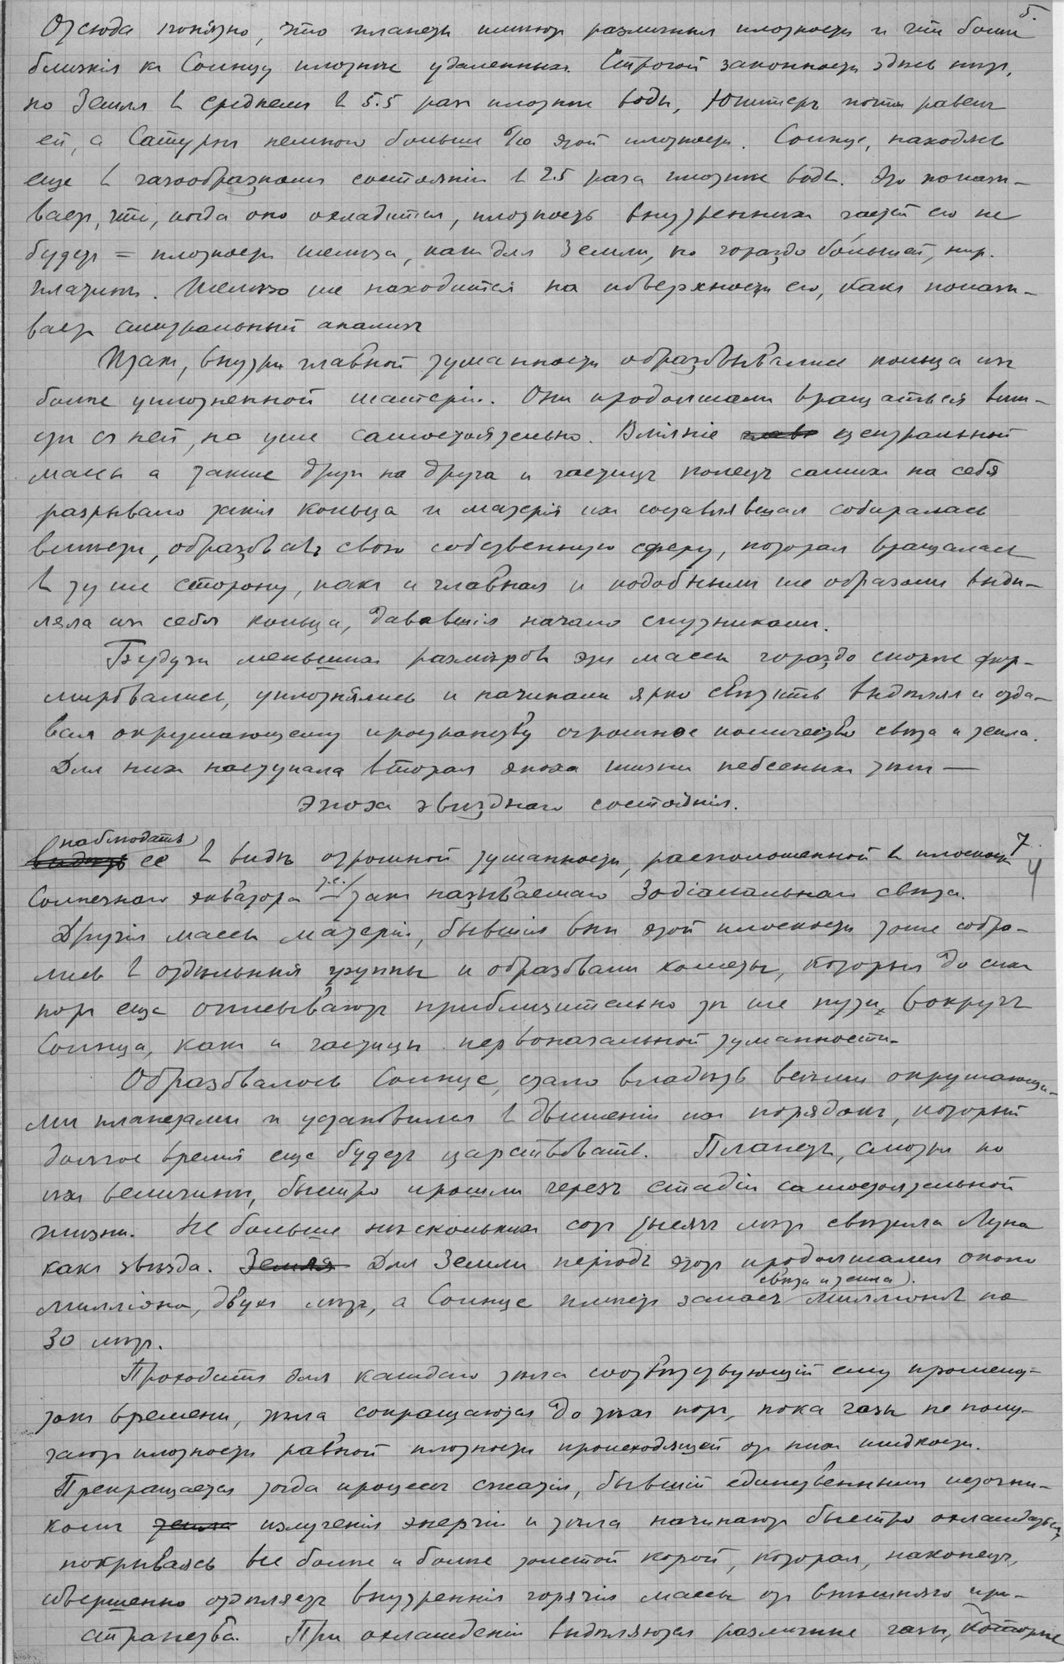 6.
Отсюда понятно, что планеты имеют различныя плотности и что более
близкія к Солнцу плотнее удаленных. Строгой законности здесь нет,
но Земля в среднем в 5.5 раз плотнее воды, Юпитер почти равен
ей, а Сатурн немного больше этой плотности. Солнце, находясь
еще в газообразном состоянии в 2.5 раза плотнее воды. Это показы-
вает, что, когда оно охладится, плотность внутренних частей его не
будет = плотности железа, как для Земли, но гораздо большей, нпр.
платины. Железо же находится на поверхности его, как показы-
вает спектральный анализ
Итак, внутри главной туманности образовывались кольца из
более уплотненной матеріи. Они продолжали вращаться вме-
сте с ней, но уже самостоятельно. Вліяніе центральной
массы а также друг на друга и частиц колец самих на себя
разрывало такія кольца и матерія их составлявшая собиралась
вместе, образовав свою собственную сферу, которая вращалась
в ту же сторону, как и главная и подобным же образом выде-
ляла из себя кольца, дававшія начало спутникам.
Будучи меньших размѣров эти массы гораздо скорѣе фор-
мировались, уплотнялись и начинали ярко свѣтить выдѣляя и отда-
вая окружающему пространству огромное количество свѣта и тепла.
Для них наступала вторая эпоха жизни небесных тѣл —
Эпоха звѣзднаго состоянія.
7.
наблюдать
видѣть ее в видѣ огромной туманности, расположенной в плоскости
Солнечнаго экватора т.е. так называемаго Зодіакальнаго свѣта.
Другія массы матеріи, бывшія внѣ этой плоскости тоже собра-
лись в отдѣльныя группы и образовали кометы, которыя до сих
пор еще описывают приблизительно тѣ же пути вокруг
Солнца, как и частицы первоначальной туманности.
Образовалось Солнце, стало владѣть всеми окружающи-
ми планетами и установился в движеніи их порядок, который
долгое время еще будет царствовать. Планеты, смотря по
их величинѣ, быстро прошли через стадіи самостоятельной
жизни. Не больше нѣскольких сот тысяч лѣт свѣтила Луна
как звѣзда. Земля Для Земли періодъ этот продолжался около
свѣта и тепла).
милліона, двух лѣт, а Солнце имѣет запас милліонов на
30 лѣт.
Проходит для каждаго тѣла соотвѣтствующій ему промежу-
ток времени, тѣла сокращаются до тѣх пор, пока газы не полу-
чают плотности равной плотности происходящей от них жидкости.
Прекращается тогда процесс сжатія, бывшій единственным источни-
ком тепла излученія энергіи и тѣла начинают быстро охлаждаться,
покрываясь все более и более толстой корой, которая, наконец,
совершенно отдѣляет внутреннія горячія массы от внѣшняго про-
странства. При охлажденіи выдѣляются различные газы, которые